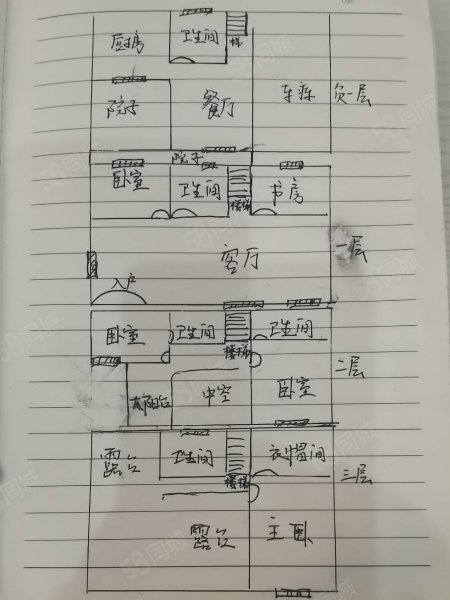 厨房 卫生间 梯
院子 餐厅 车库 负一层
院子
卧室 卫生间 楼梯 书房
客厅 一层
入户
卧室 卫生间 楼梯 卫生间
阳台 中空 卧室 二层
露台 卫生间 楼梯 衣帽间 三层
露台 主卧
58同城